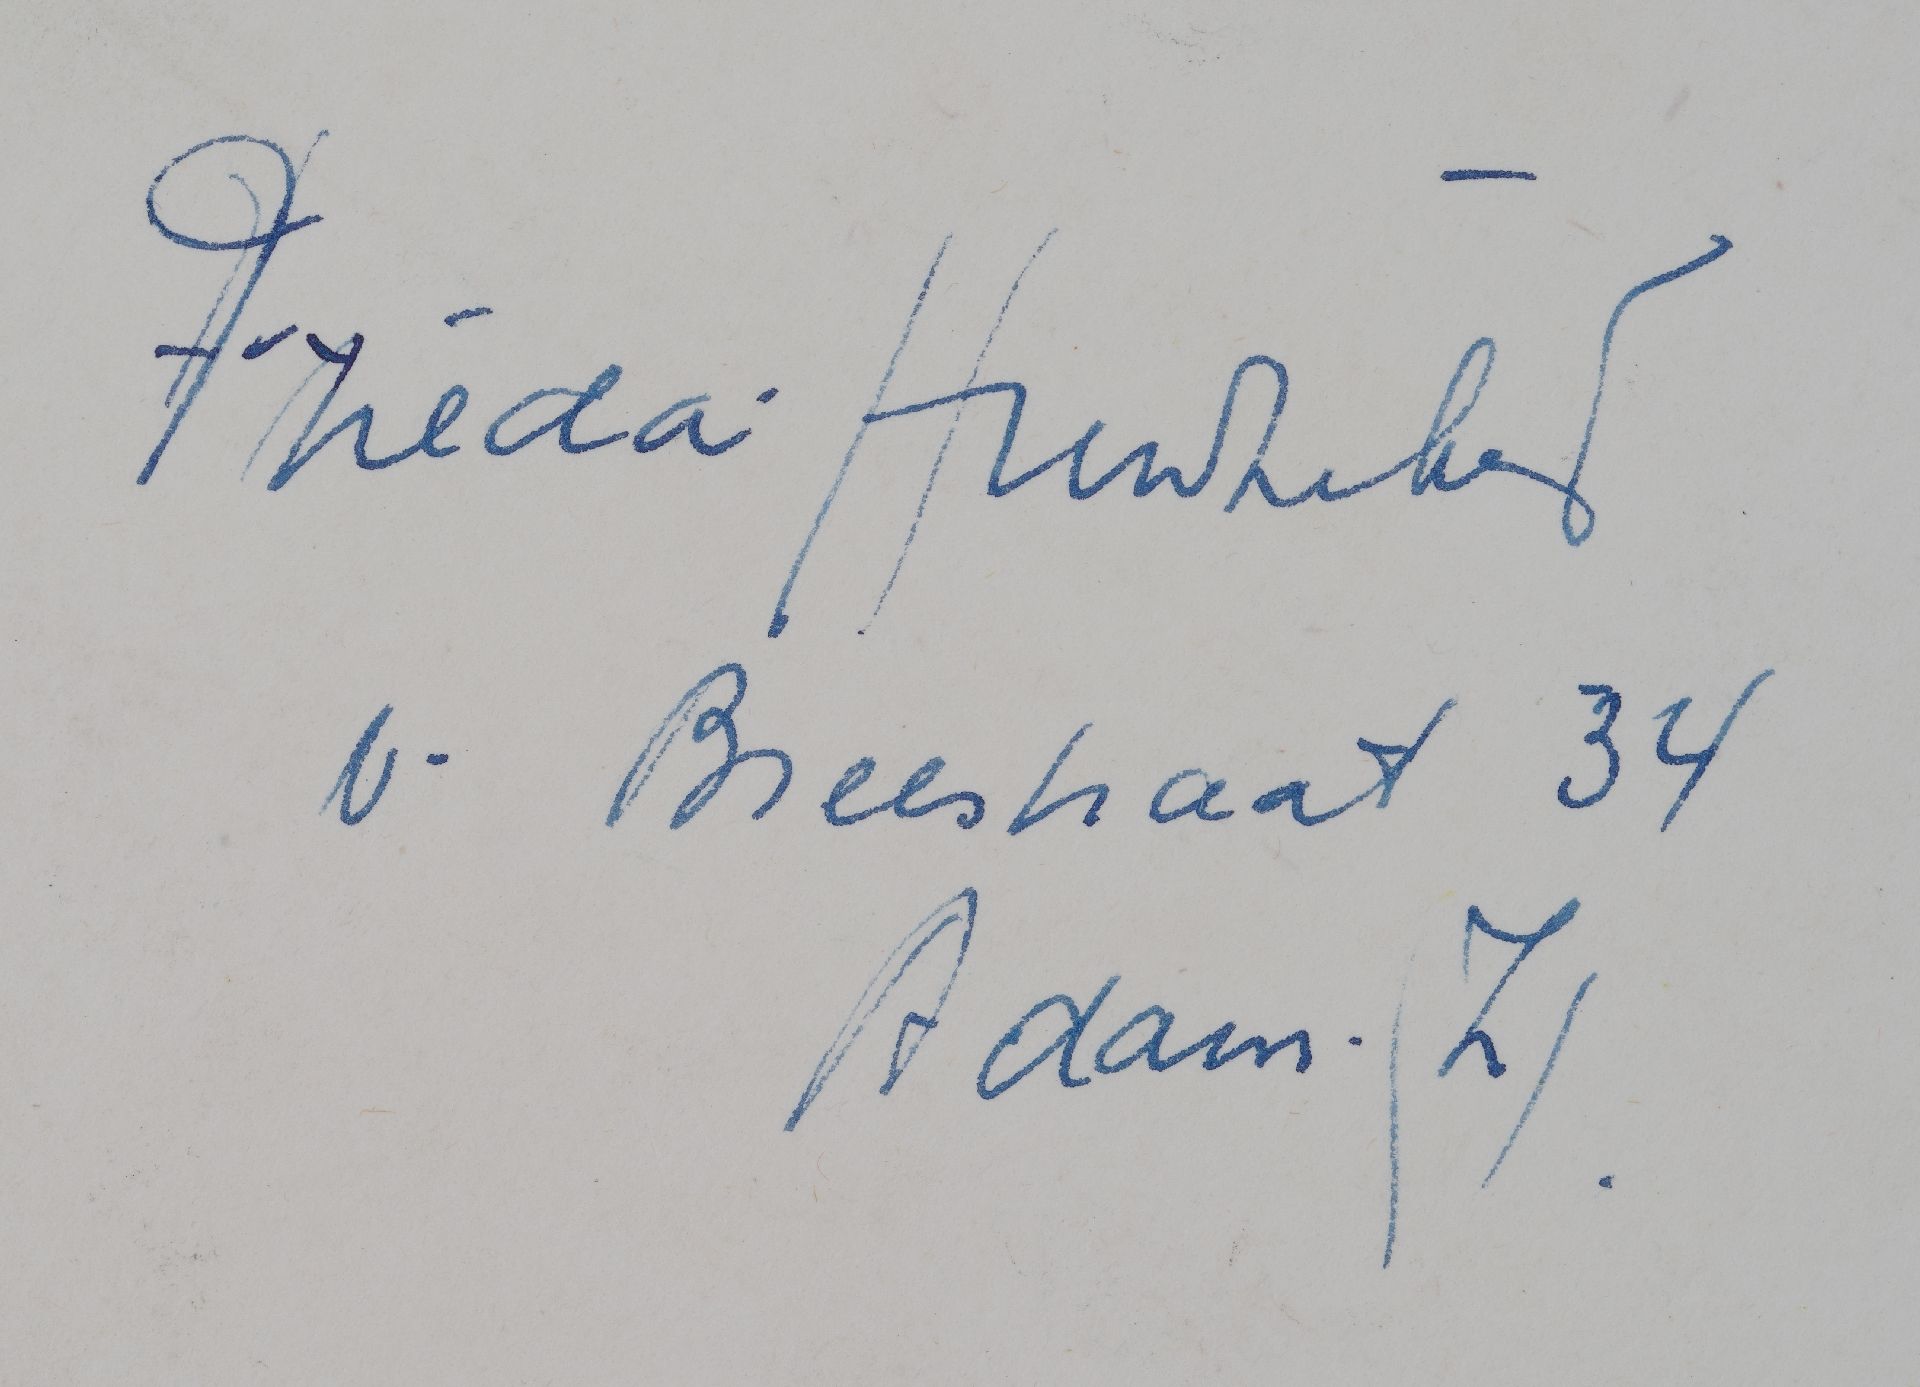 Frieda Hunziker
v. Breestraat 34
Adam. (Z).